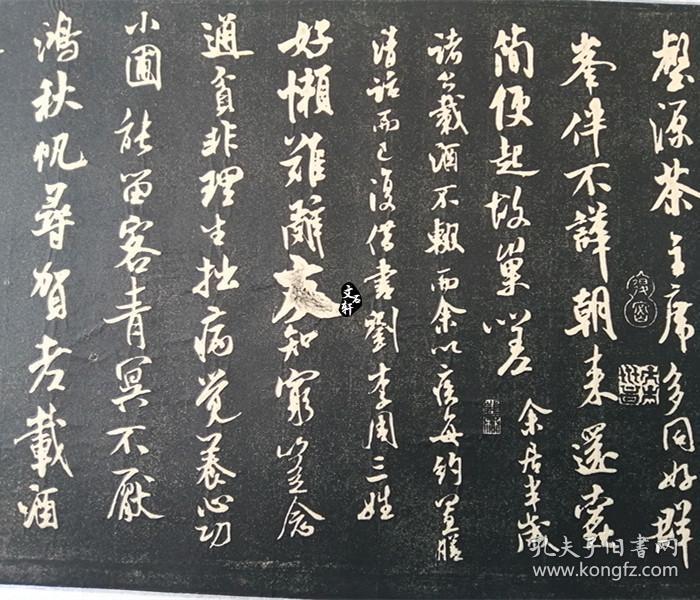 壑源茶主席多同好群
峯伴不譁朝来還蠹
簡便起故巢嗟 余居半歲
諸公載酒不輟而余以疾每約置膳
清話而已復借書劉李周三姓
好懶難辭友知窮豈念
通貧非理生拙病覺養心功
小圃能留客青冥不厭
鴻秋帆尋賀老載酒
文石轩
孔夫子旧书网
www.kongfz.com